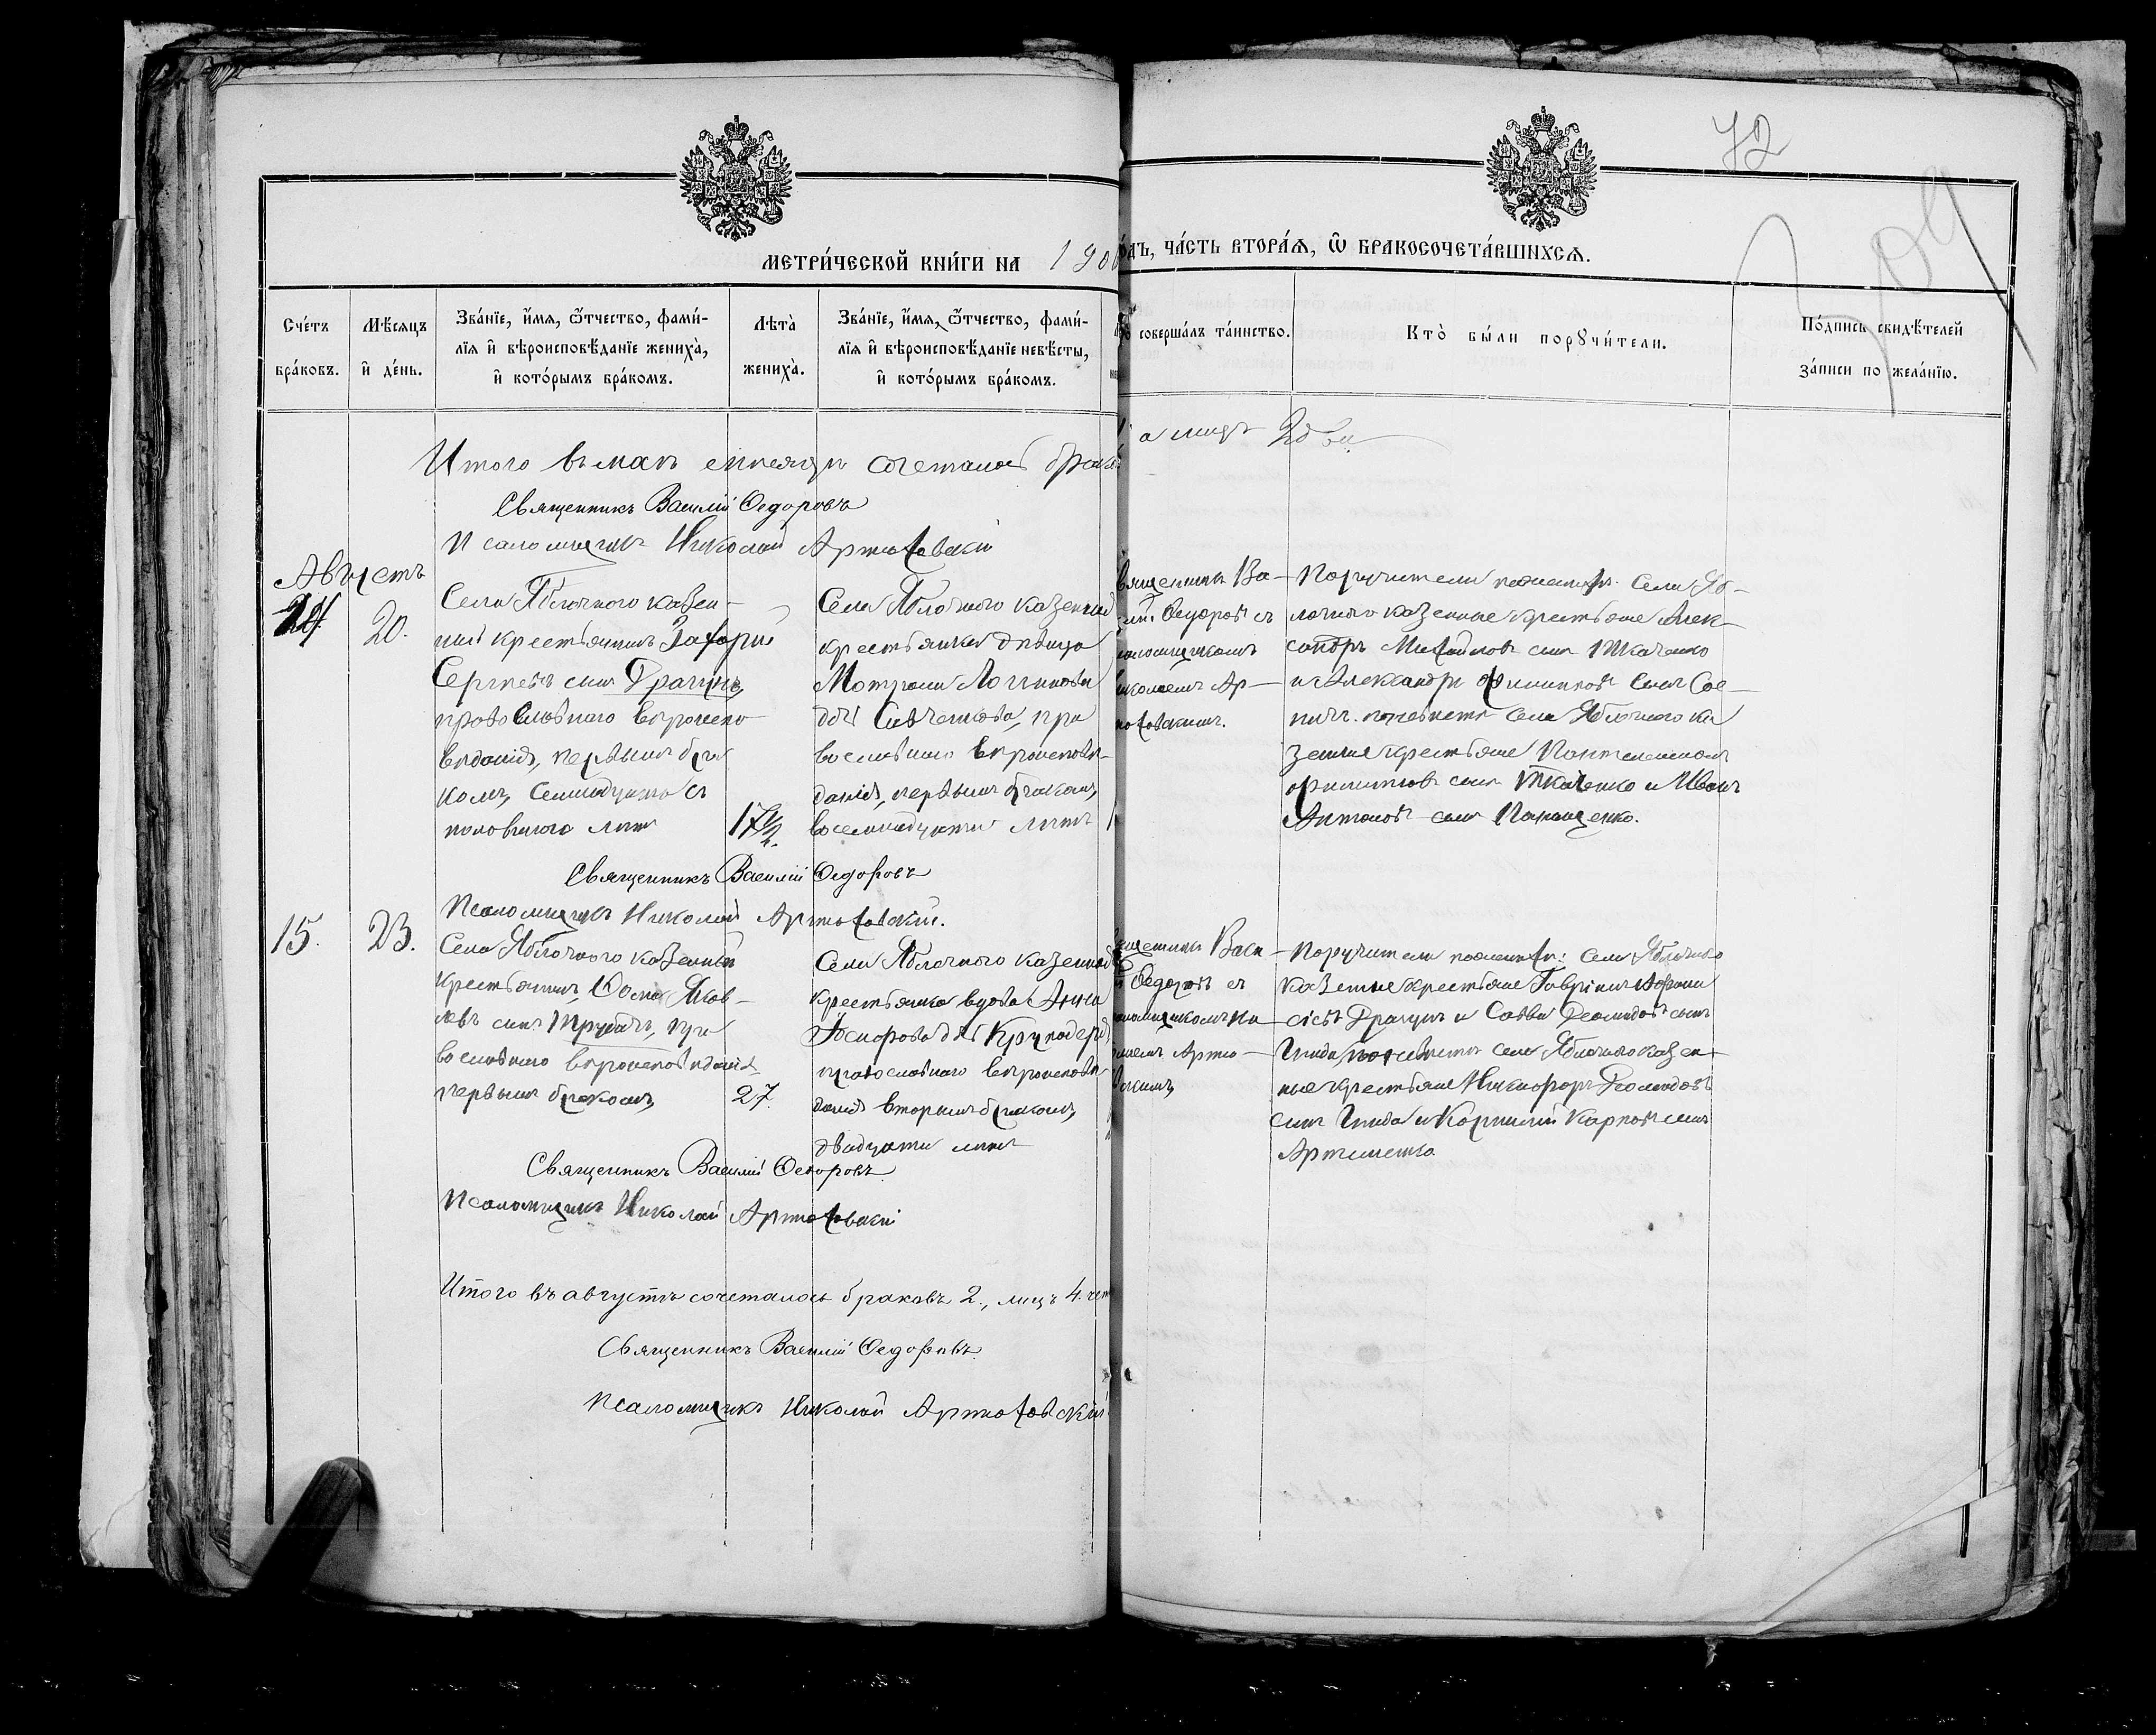 72
МЕТРИ́ЧЕСКОЙ КНИ́ГИ НА 190
ЧА́СТЬ ВТОРА́Я, Ѿ БРАКОСОЧЕТА́ВШИХСЯ.
Сче́тъ бра́ковъ.
Мѣ́сяцъ и҆ де́нь.
Зва́нїе, и҆́мя, ѻ҆́тчество, фами́-
лїя и҆ вѣроисповѣ́данїе жениха̀,
и҆ кото́рымъ бра́комъ.
Лѣта̀ жениха̀.
Зва́нїе, и҆́мя, ѻ҆́тчество, фами́-
лїя и҆ вѣроисповѣ́данїе невѣ́сты,
и҆ кото́рымъ бра́комъ.
соверша́лъ та́инство.
Кто̀ бы́ли порꙋчи́тели.
По́дпись свидѣ́телей
за́писи по жела́нїю.
Итого въ маѣ сочеталось
а лицъ два
Священникъ Василій Ѳедоровъ
Псаломщикъ Николай Артюховскій
Августъ
20.
Села Яблочного казен-
ный крестьянинъ Захарій
Сергѣевъ сынъ Драгунъ,
православнаго вѣроиспо-
вѣданія, первымъ бра-
комъ, семнадцати съ
половиною лѣтъ
17½
Села Яблочного казенная
крестьянка дѣвица
Мотрона Логинова
дочь Савченкова, пра-
вославнаго вѣроисповѣ-
данія, первымъ бракомъ,
восемнадцати лѣтъ
Священникъ Ва-
Ѳедоровъ съ
псаломщикомъ
Николаемъ Ар-
тюховскимъ.
Поручители по женихѣ: села Яб-
лочного казенные крестьяне Алек-
сандръ Михайловъ сынъ Ткаченко
и Александръ Филиповъ сынъ
по невѣстѣ села Яблочного ка
зенные крестьяне Пантелеимонъ
Филиповъ сынъ Ткаченко и Иванъ
Антоновъ сынъ Панащенко.
Священникъ Василій Ѳедоровъ
Псаломщикъ Николай Артюховскій.
15.
23.
Села Яблочного казенный
крестьянинъ, Ѳома Яков-
левъ сынъ Трубачъ, пра
вославнаго вѣроисповѣданія
первымъ бракомъ,
27.
Села Яблочного казенная
крестьянка вдова Анна
дочь
православнаго вѣроисповѣ-
данія вторымъ бракомъ,
двадцати лѣтъ
Васи
Ѳедоровъ съ
псаломщикомъ Ни
Артю-
Поручители по женихѣ: села Яблочного
казенные крестьяне Гавріилъ Афана
сіевъ Драгунъ и Савва Деомидовъ сынъ
Гнида, по невѣстѣ села Яблочного казен-
ные крестьяне Никифоръ Деомидовъ
сынъ Гнида и Корнилій Карповъ сынъ
Артеменко
Священникъ Василій Ѳедоровъ
Псаломщикъ Николай Артюховскій
Итого въ августѣ сочеталось браковъ 2., лицъ 4. чет
Священникъ Василій Ѳедоровъ.
Псаломщикъ Николай Артюховскій